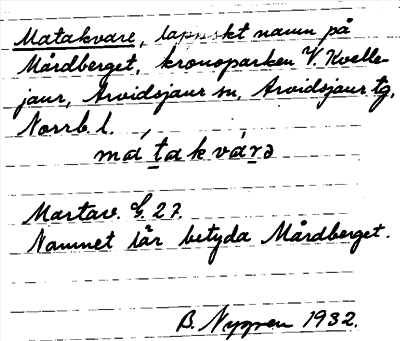 Matakvare, lapskt namn på
Mårdberget, kronoparken V. Kvelle-
jaur, Arvidsjaur sn, Arvidsjaur tg,
Norrb. l.
má́takvárə
Martav. G. 27.
Namnet lär betyda Mårdberget.
B. Nygren 1932.